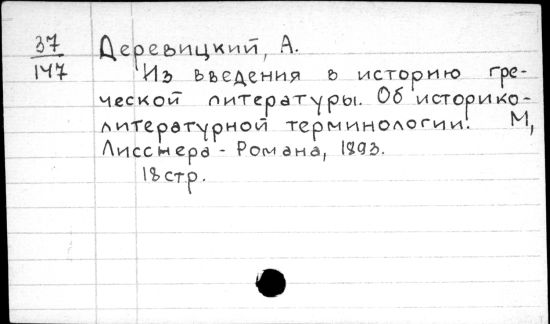 37
147
Деревицкий, А.
Из введения в историю гре-
ческой литературы. Об историко-
литературной терминологии. М,
Лисснера - Романа, 1893.
18 стр.